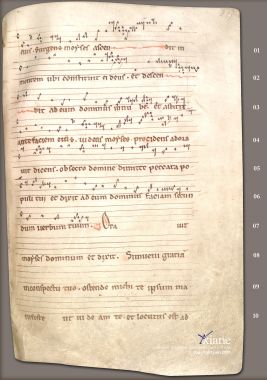 eius. surgens moyses ascen dit in
montem ubi constituit ei deus. et descen
dit ad eum dominus in nube et astitit
ante faciem eius. Videns moyses procidens adora
vit dicens. obsecro domine dimitte peccata po
puli tui et dixit ad eum dominus faciam secun
dum verbum tuum. Ora vit
moyses dominum et dixit. Si inveni gratiam
in conspectu tuo. ostende michi te ipsum ma
nifeste ut videam te et locutus est ad
01
02
03
04
05
06
07
08
09
10